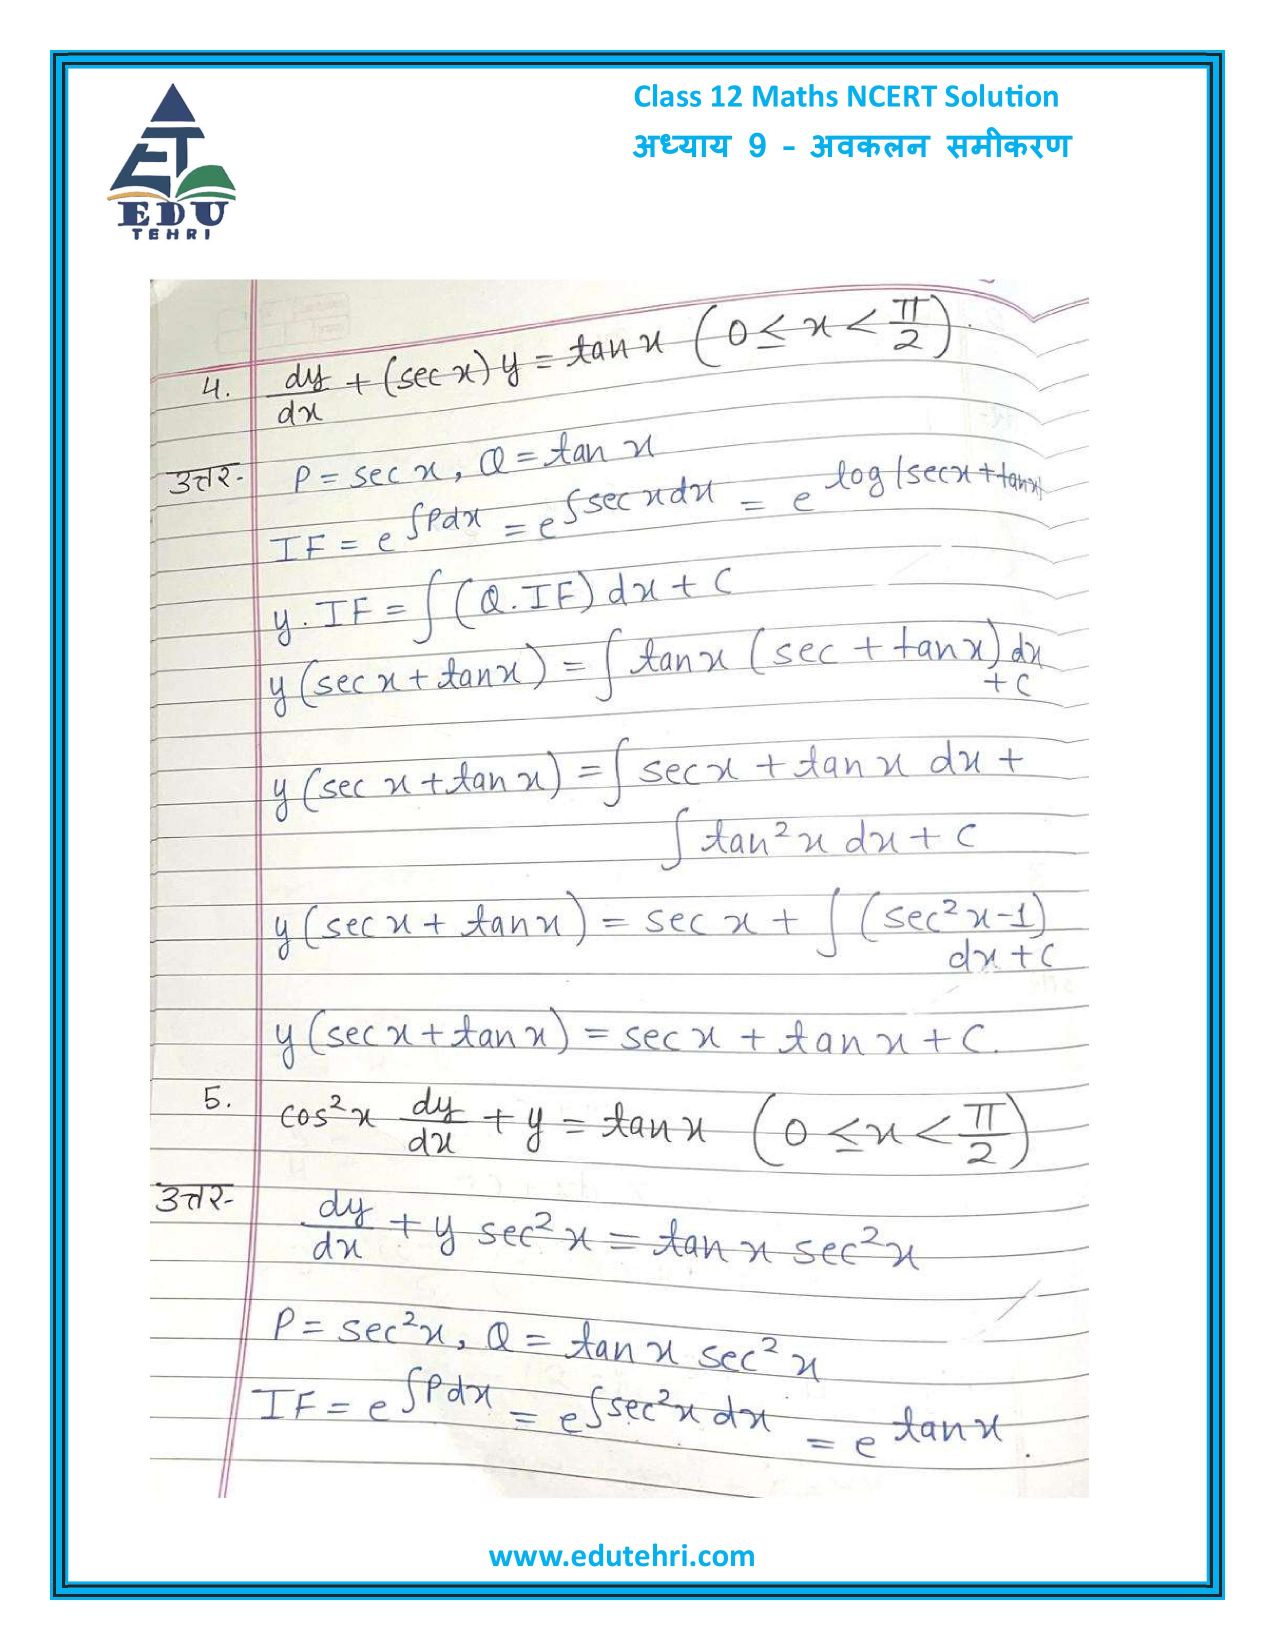 Class 12 Maths NCERT Solution
अध्याय 9 - अवकलन समीकरण
EDU
TEHRI
4. dy/dx + (sec x) y = tan x (0 ≤ x < π/2).
उत्तर- P = sec x, Q = tan x
IF = e^∫Pdx = e^∫sec x dx = e^log|sec x + tan x|
y . IF = ∫(Q.IF) dx + C
y (sec x + tan x) = ∫ tan x (sec + tan x) dx
+ C
y (sec x + tan x) = ∫ sec x + tan x dx +
∫ tan²x dx + C
y (sec x + tan x) = sec x + ∫ (sec²x - 1)
dx + C
y (sec x + tan x) = sec x + tan x + C.
5. cos²x dy/dx + y = tan x (0 ≤ x < π/2)
उत्तर- dy/dx + y sec²x = tan x sec²x
P = sec²x, Q = tan x sec²x
IF = e^∫Pdx = e^∫sec²x dx = e^tan x.
www.edutehri.com